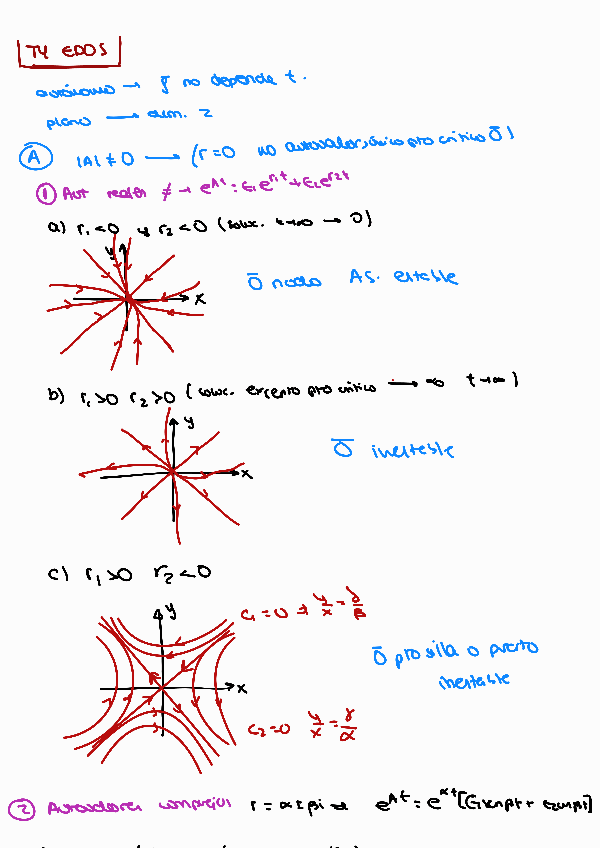 T4 EDOS
autónomo → f no depende t.
plano → dim. 2
A |A| ≠ 0 → (r=0 no autovalor, único pto crítico 0̄)
① Aut reales ≠ → e^At = c₁e^r₁t + c₂e^r₂t
a) r₁<0 y r₂<0 (soluc. t→∞ → 0)
y
x
0̄ nodo As. estable
b) r₁>0 r₂>0 (soluc. excepto pto crítico → ∞ t→∞)
y
0̄ inestable
x
c) r₁>0 r₂<0
y
c₁=0 ⇒ y/x = δ/β
0̄ pto silla o puerto
inestable
x
c₂=0 y/x = γ/α
② Autovalores complejos r = α ± βi ⇒ e^At = e^αt